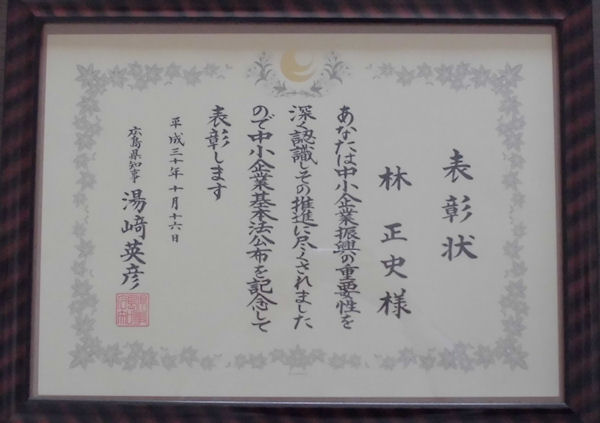 表彰状
林正史様
あなたは中小企業振興の重要性を
深く認識しその推進に尽くされました
ので中小企業基本法公布を記念して
表彰します
平成三十年十月十六日
広島県知事 湯﨑英彦